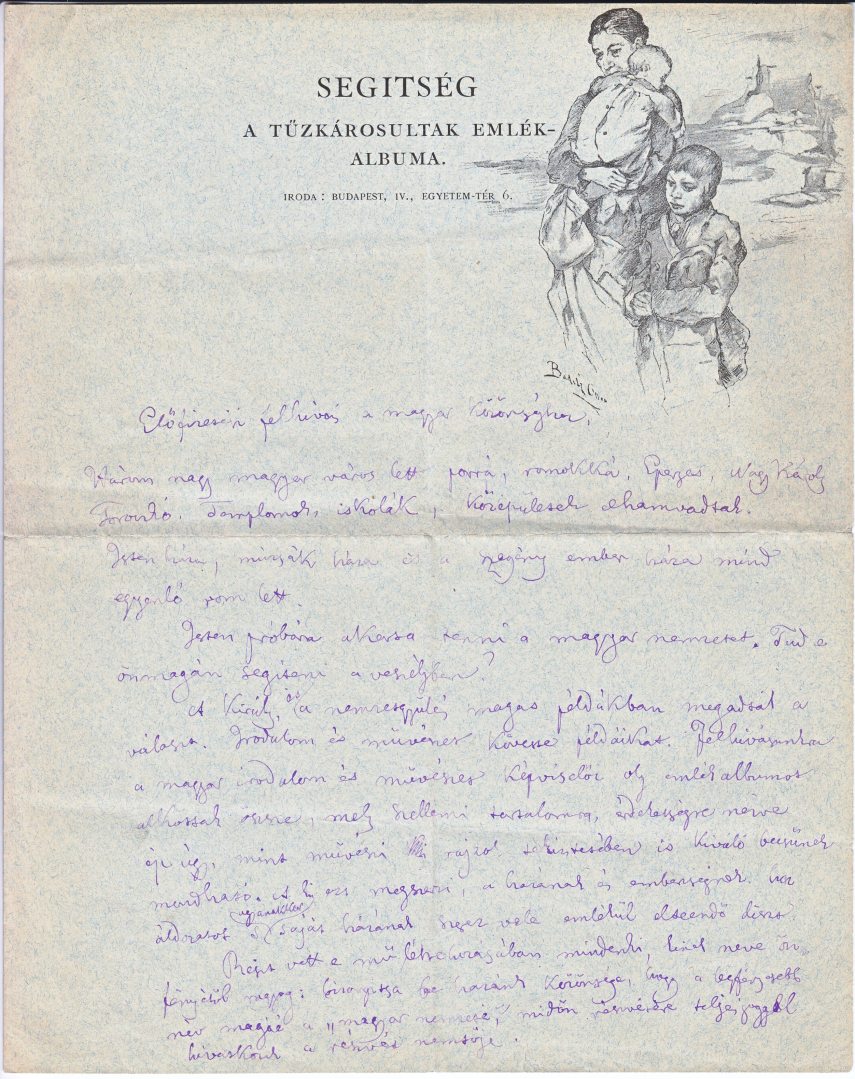 SEGITSÉG
A TŰZKÁROSULTAK EMLÉK-
ALBUMA.
IRODA : BUDAPEST, IV., EGYETEM-TÉR 6.
Előfizetési felhívás a magyar közönséghez.
Három nagy magyar város lett porrá, romokká, Eperjes, Nagy Károly
Toroczkó. Templomok, iskolák, középületek elhamvadtak.
Isten háza, múzsák háza és a szegény ember háza mind
egyenlő rom lett.
Isten próbára akarta tenni a magyar nemzetet. Tud e
önmagán segíteni a veszélyben?
A Király, és a nemzetgyűlés magas példákban megadták a
választ. Irodalom és művészet kövesse példáikat. Felhívásunkra
a magyar irodalom és művészet képviselői oly emlékalbumot
alkottak össze, mely szellemi tartalomra, érdekességre nézve
ép úgy, mint művészi rajzok tekintetében is kiváló becsünek
mondható. A ki ezt megszerzi, a hazának és emberiségnek hoz
áldozatot s ugyanakkor saját házának szerez vele emlékül elteendő díszt.
Részt vett e mű létrehozásában mindenki, kinek neve
fényétől ragyog: bizonyítsa be hazánk közönsége, hogy a legfényesebb
név magáé a „magyar nemzeté", midőn részvétére teljes joggal
hivatkozik a részvét nemtője.